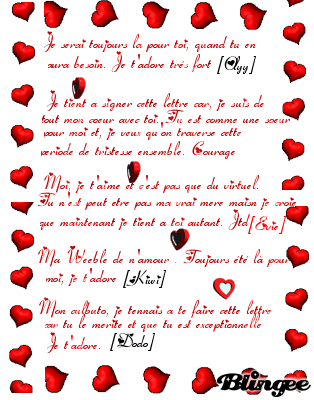 Je serai toujours la pour toi, quand tu en
aura besoin. Je t'adore trés fort [Clyy]
Je tient a signer cette lettre car, je suis de
tout mon coeur avec toi. Tu est comme une soeur
pour moi et, je veux qu'on traverse cette
periode de tristesse ensemble. Courage
Moi, je t'aime et c'est pas que du virtuel.
Tu n'est peut etre pas ma vrai mere maisn je crois
que maintenant je tient a toi autant. Jtd[Evie]
Ma Weeble de n'amour . Toujours eté là pour
moi, je t'adore [Kiwi]
Mon culbuto, je tennais a te faire cette lettre
car tu le merite et que tu est exceptionnelle
Je t'adore. [Dodo]
Blingee